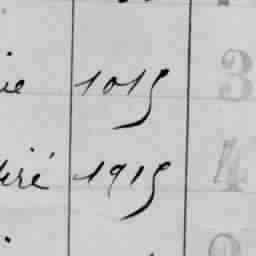 ie 1915 3
iré 1915 4